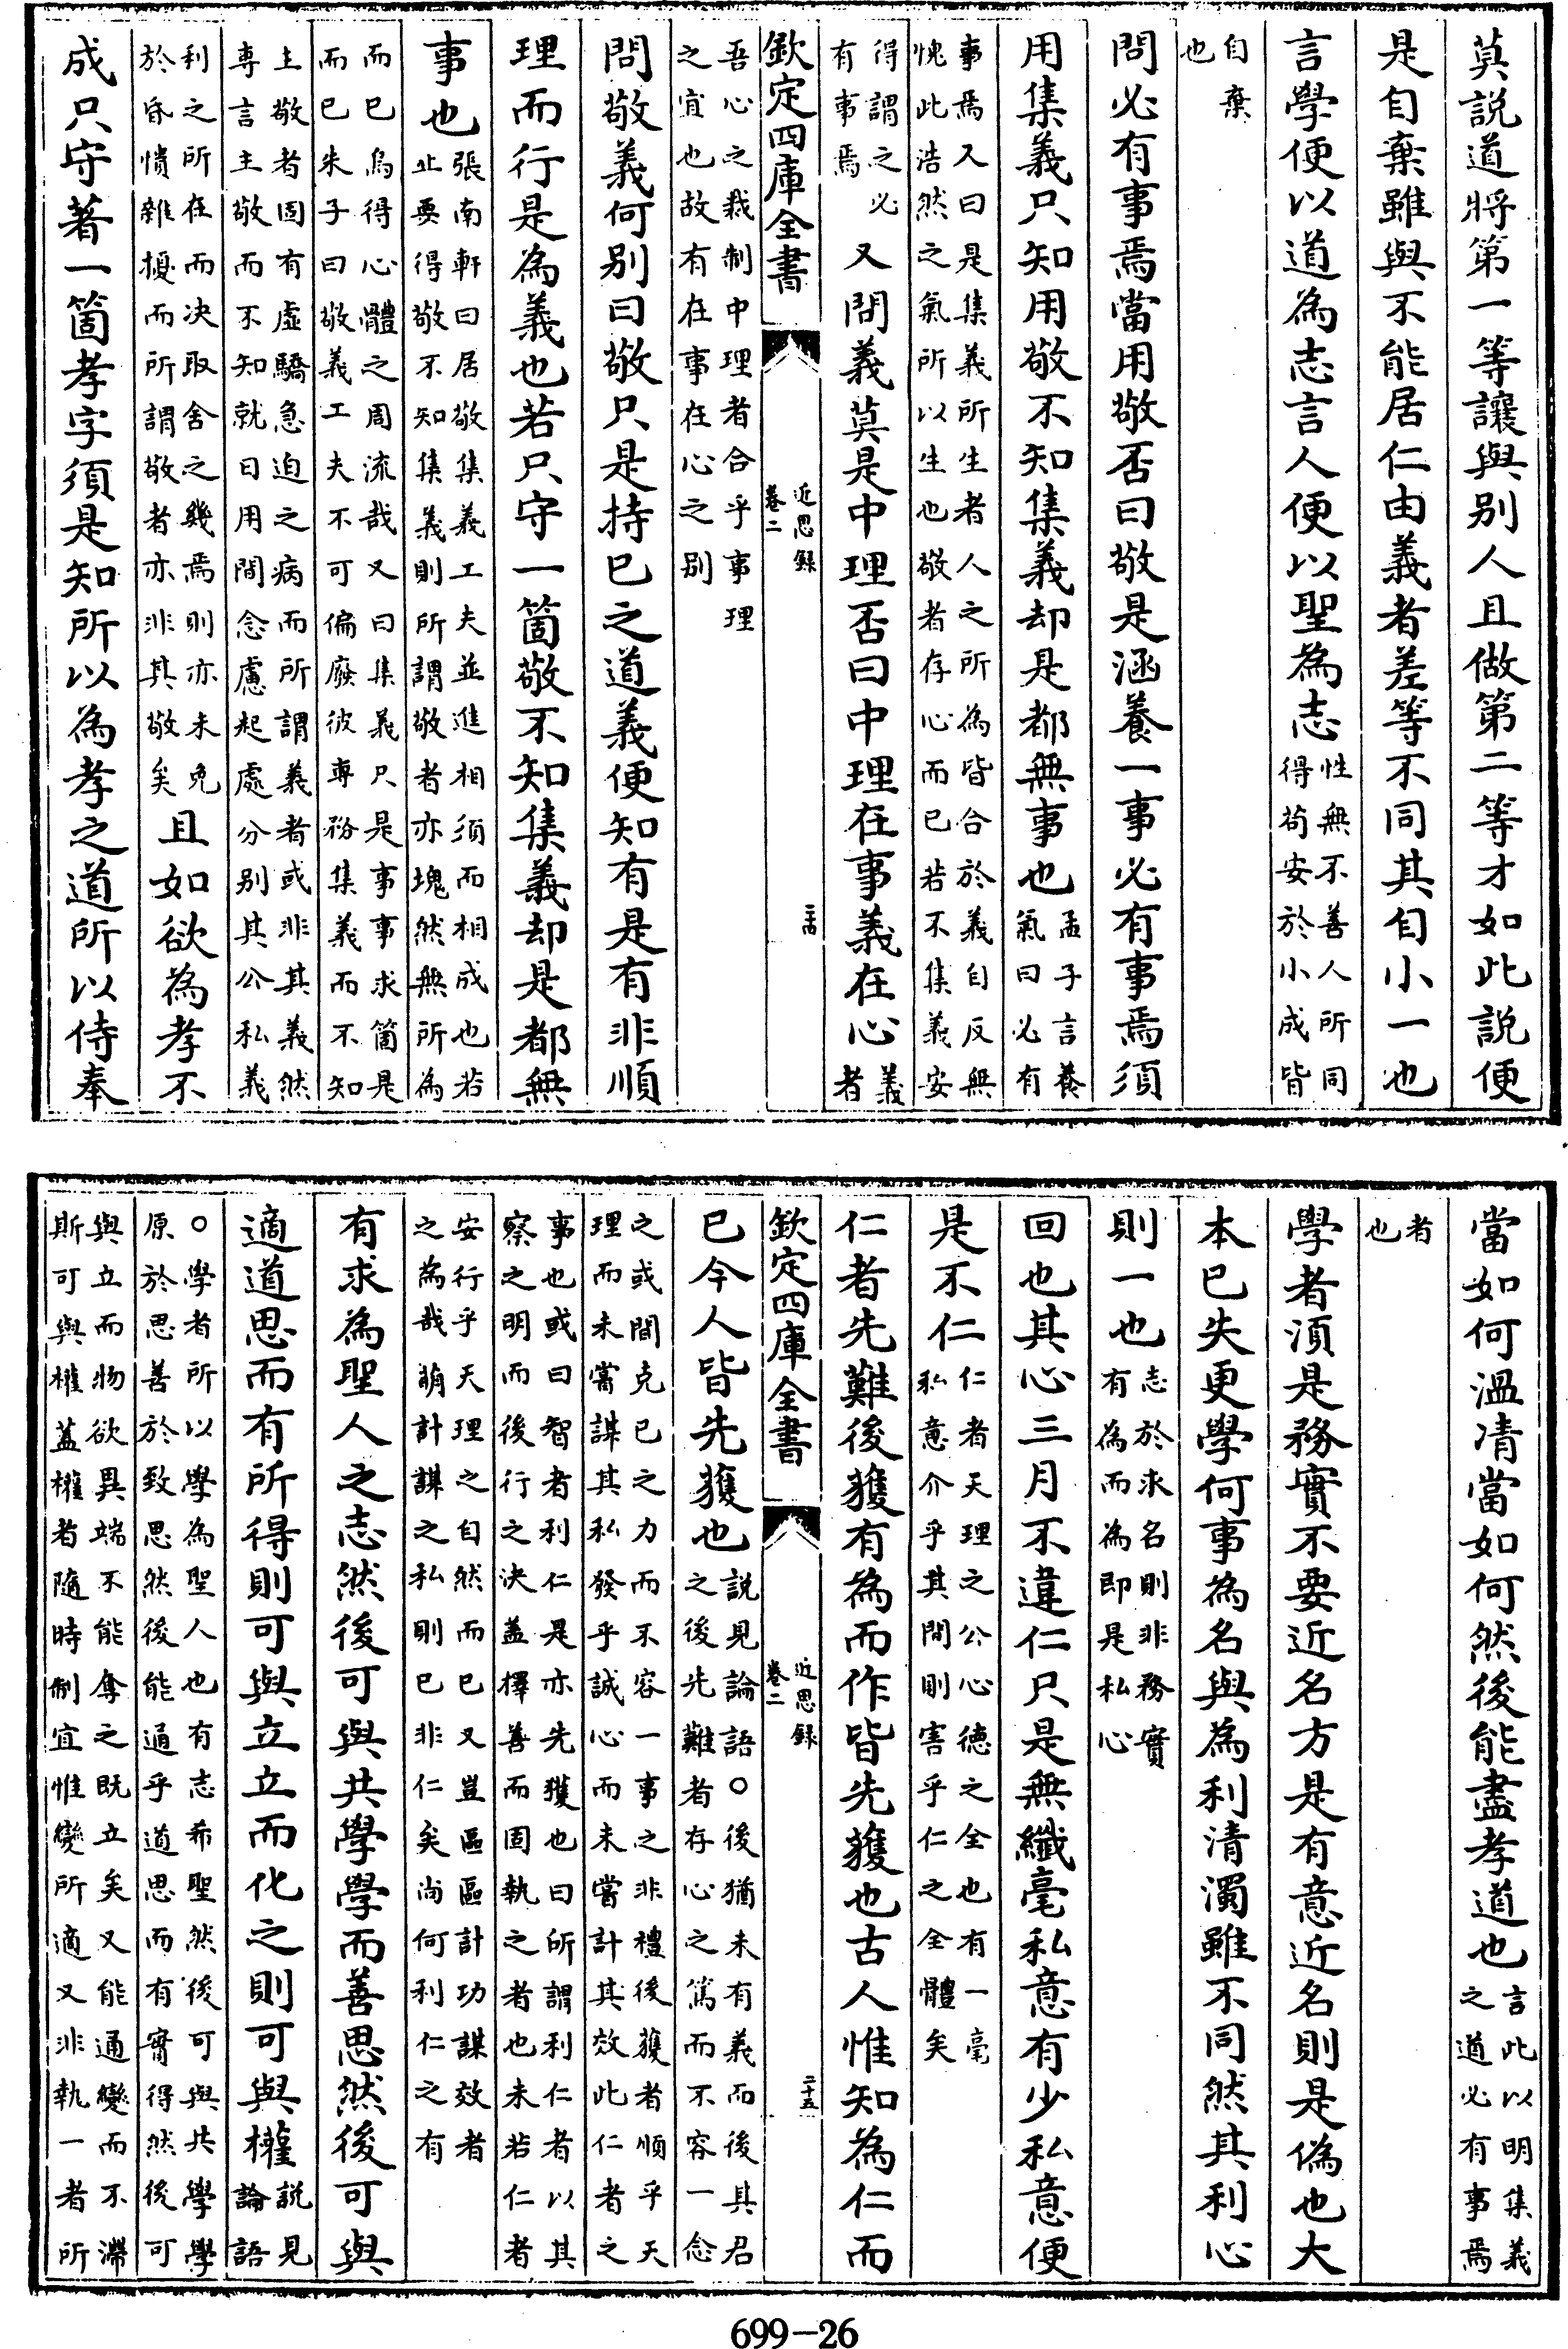 莫説道將第一等讓與别人且做第二等才如此説便
是自棄雖與不能居仁由義者差等不同其自小一也
言學便以道為志言人便以聖為志性無不善人所同
得苟安於小成皆
自棄
也
問必有事焉當用敬否曰敬是涵養一事必有事焉須
用集義只知用敬不知集義却是都無事也孟子言養
氣曰必有
事焉又曰是集義所生者人之所為皆合於義自反無
愧此浩然之氣所以生也敬者存心而已若不集義安
得謂之必
有事焉
又問義莫是中理否曰中理在事義在心義
者
欽定四庫全書
近思録
卷二
二十四
吾心之裁制中理者合乎事理
之宜也故有在事在心之别
問敬義何别曰敬只是持已之道義便知有是有非順
理而行是為義也若只守一箇敬不知集義却是都無
事也張南軒曰居敬集義工夫並進相須而相成也若
止要得敬不知集義則所謂敬者亦塊然無所為
而已烏得心體之周流哉又曰集義只是事事求箇是
而已朱子曰敬義工夫不可偏廢彼專務集義而不知
主敬者固有虚驕急迫之病而所謂義者或非其義然
專言主敬而不知就日用間念慮起處分别其公私義
利之所在而决取舍之幾焉則亦未免
於昏憒雜擾而所謂敬者亦非其敬矣
且如欲為孝不
成只守著一箇孝字須是知所以為孝之道所以侍奉
當如何溫凊當如何然後能盡孝道也言此以明集義
之道必有事焉
者
也
學者須是務實不要近名方是有意近名則是偽也大
本已失更學何事為名與為利清濁雖不同然其利心
則一也志於求名則非務實
有為而為即是私心
回也其心三月不違仁只是無纖毫私意有少私意便
是不仁仁者天理之公心德之全也有一毫
私意介乎其間則害乎仁之全體矣
仁者先難後獲有為而作皆先獲也古人惟知為仁而
欽定四庫全書
近思録
卷二
二十五
已今人皆先獲也説見論語○後猶未有義而後其君
之後先難者存心之篤而不容一念
之或間克已之力而不容一事之非禮後獲者順乎天
理而未嘗謀其私發乎誠心而未嘗計其效此仁者之
事也或曰智者利仁是亦先獲也曰所謂利仁者以其
察之明而後行之決蓋擇善而固執之者也未若仁者
安行乎天理之自然而已又豈區區計功謀效者
之為哉萌計謀之私則已非仁矣尚何利仁之有
有求為聖人之志然後可與共學學而善思然後可與
適道思而有所得則可與立立而化之則可與權説見
論語
○學者所以學為聖人也有志希聖然後可與共學學
原於思善於致思然後能通乎道思而有實得然後可
與立而物欲異端不能奪之既立矣又能通變而不滯
斯可與權蓋權者隨時制宜惟變所適又非執一者所
699-26